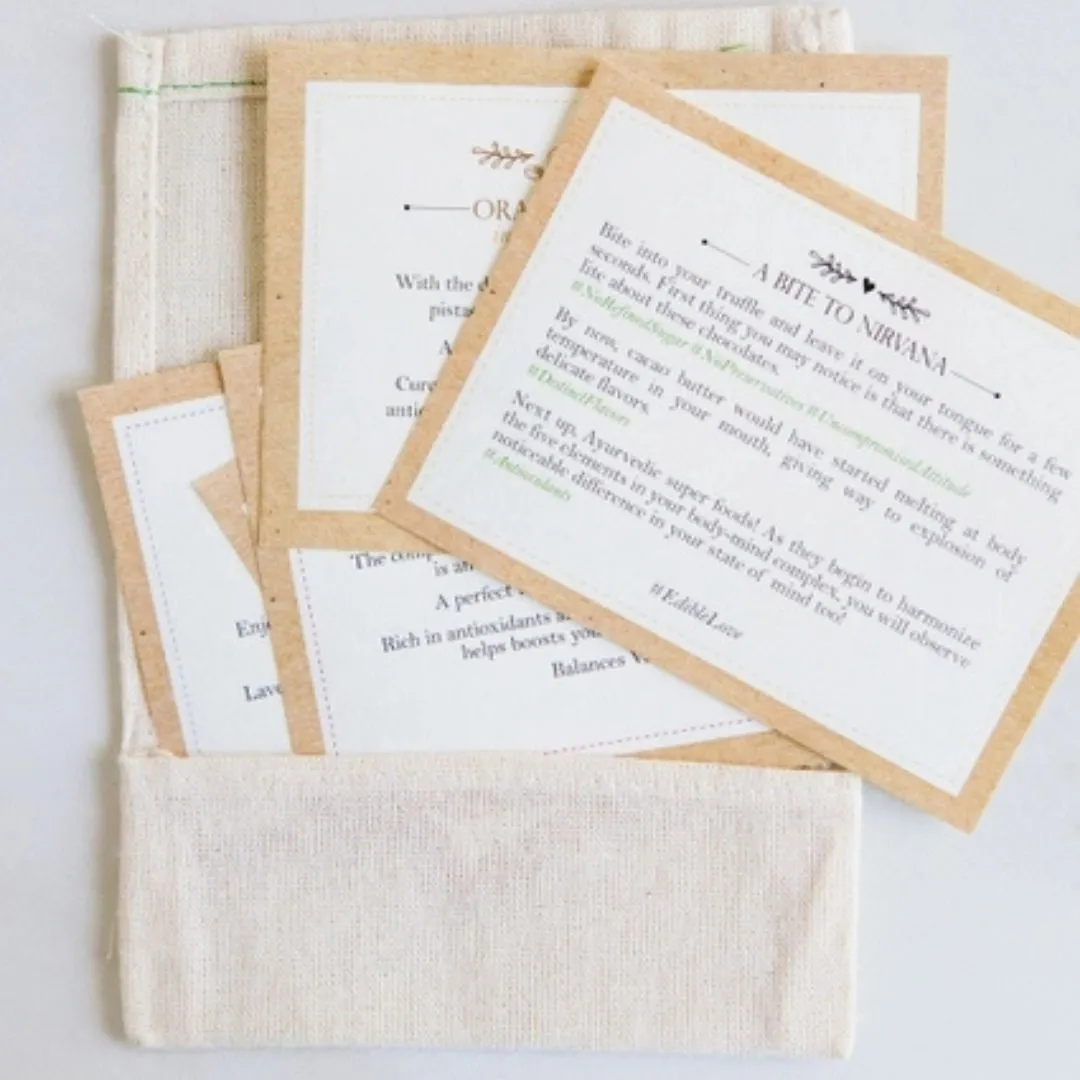 A BITE TO NIRVANA
Bite into your truffle and leave it on your tongue for a few
seconds. First thing you may notice is that there is something
lite about these chocolates.
#NoRefinedSugar #NoPreservatives #UncompromisedAttitude
By now, cacao butter would have started melting at body
temperature in your mouth, giving way to explosion of
delicate flavors.
#DistinctFlavors
Next up, Ayurvedic super foods! As they begin to harmonize
the five elements in your body-mind complex, you will observe
noticeable difference in your state of mind too!
#Antioxidants
#EdibleLove
ORA
With the d
pista
A
Cure
antio
The comp
is an
A perfect
Rich in antioxidants a
helps boosts you
Balances V
Enj
Lave